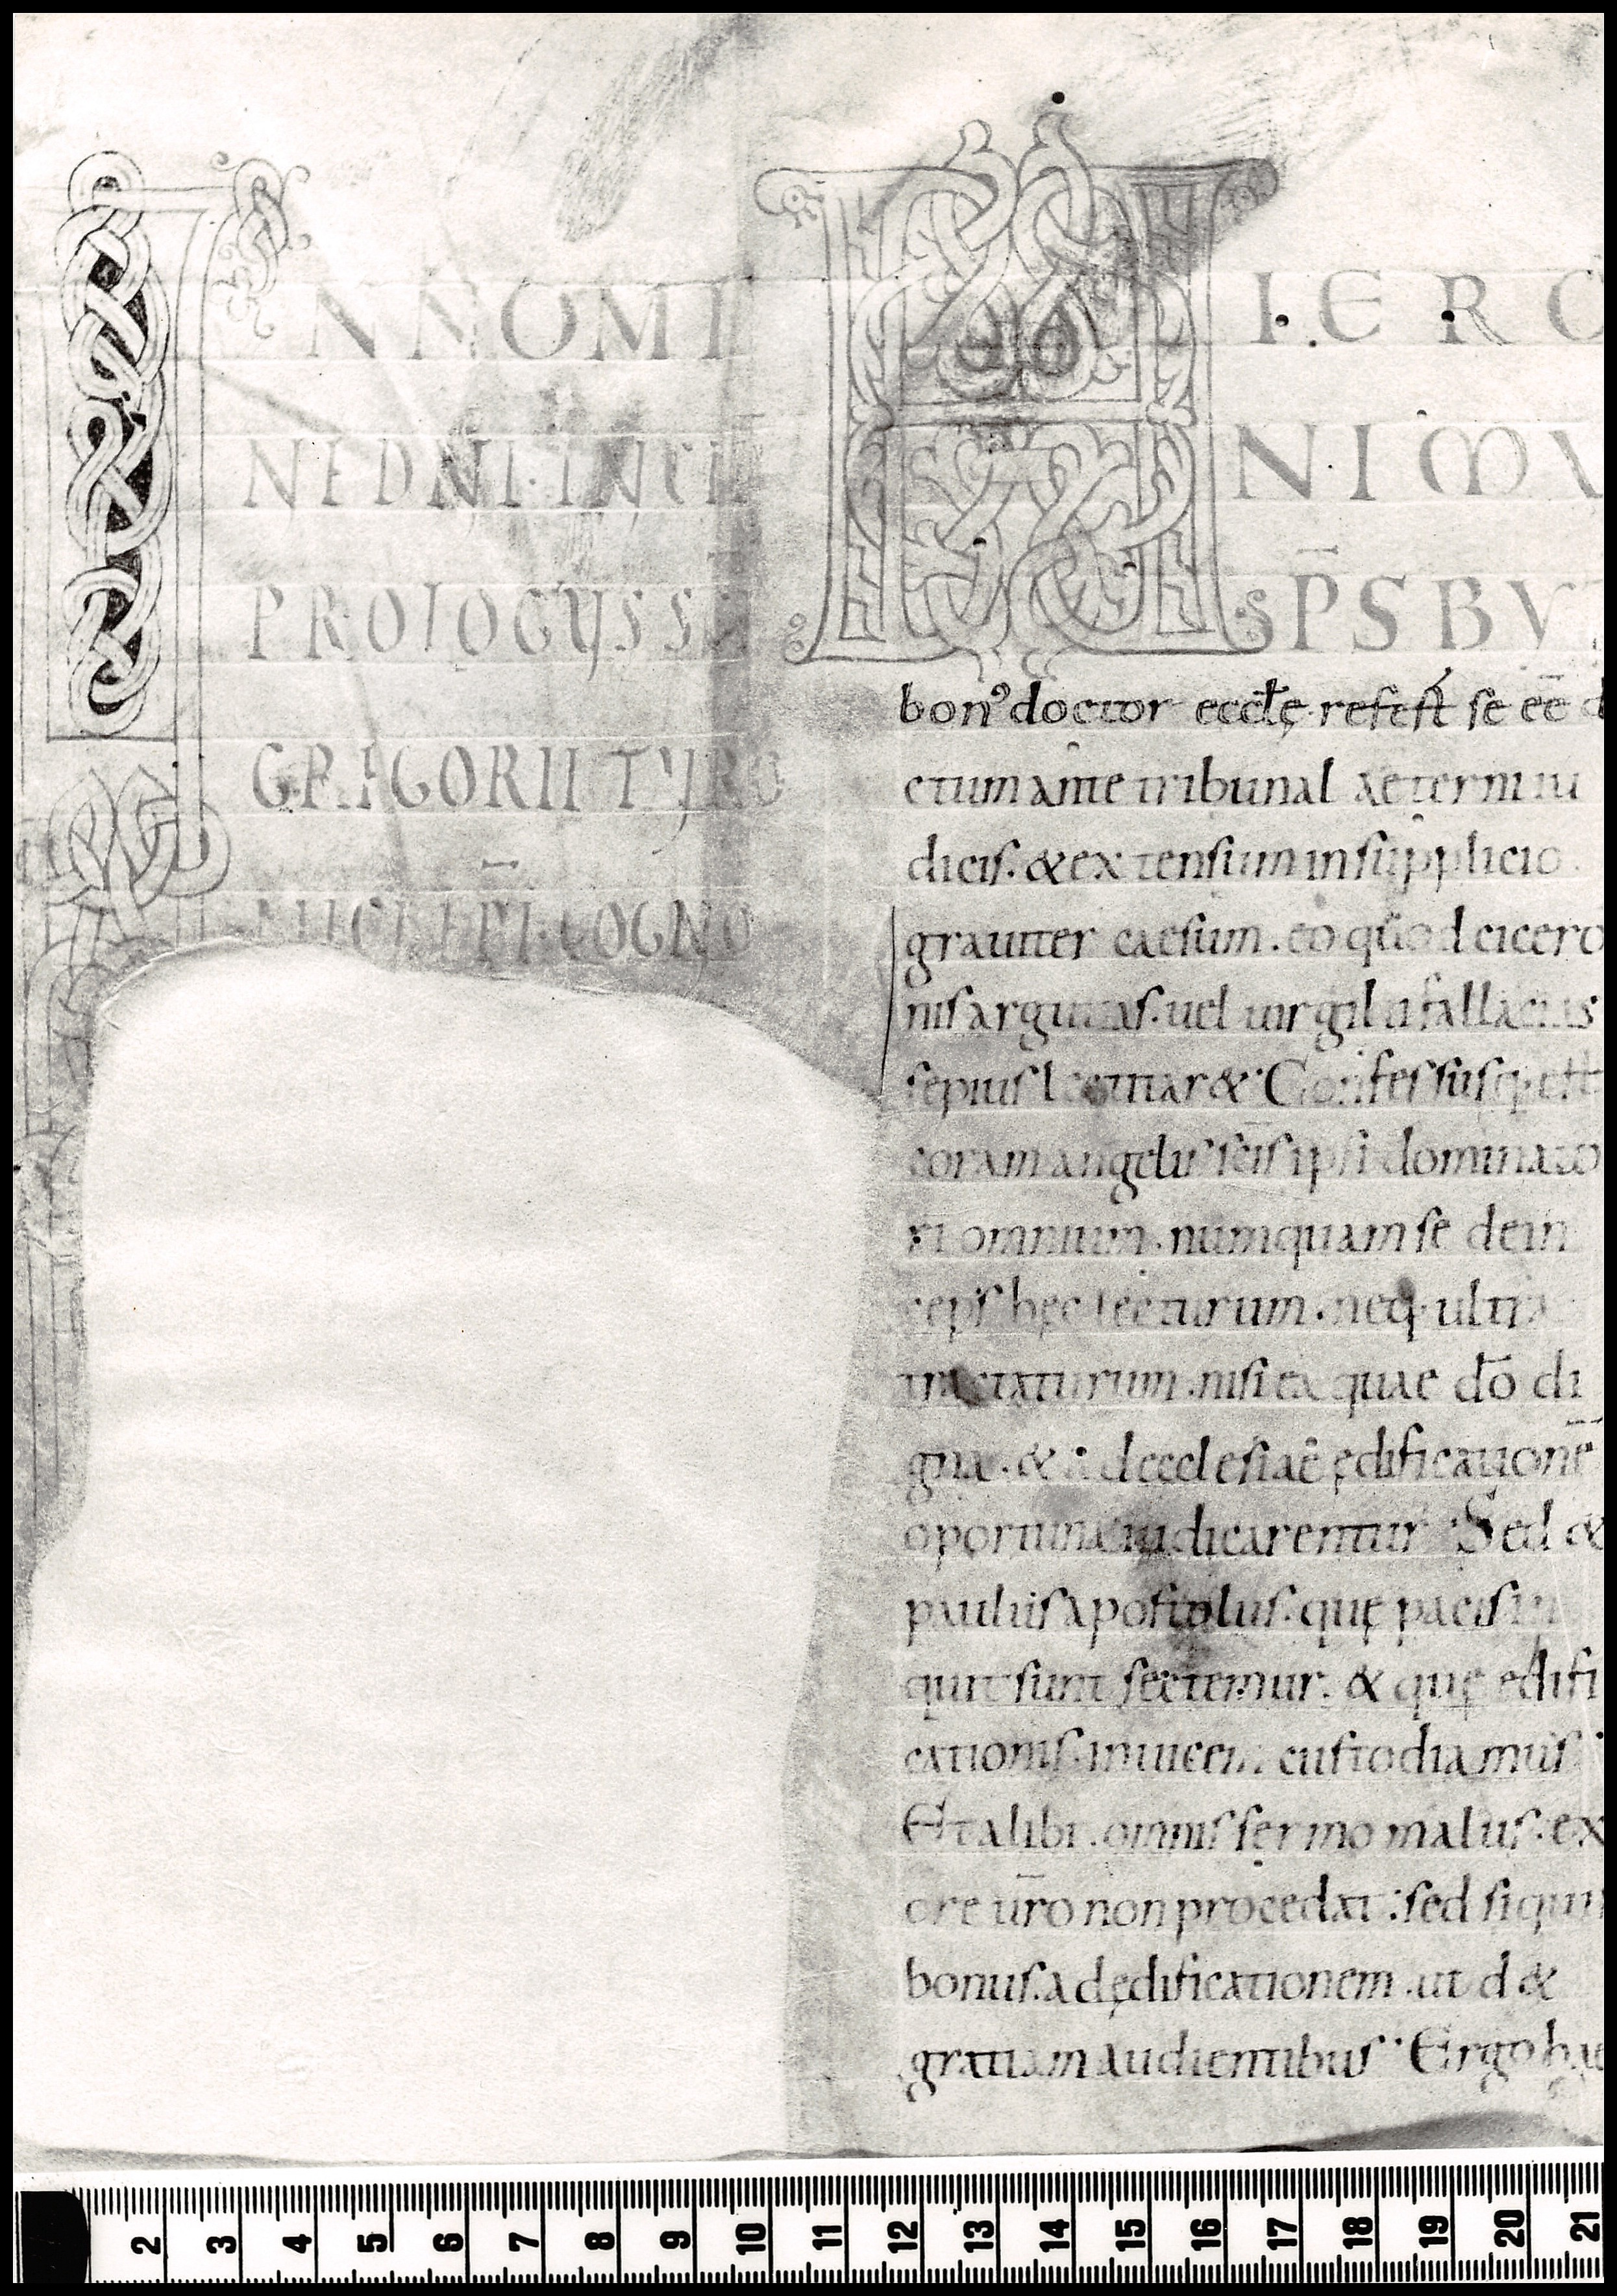 INNOMI
NEDNI·INCI
PROLOGUS S̅
GREGORII TYRO
NICI EPI̅·COGNO
HIERO
NIMV
SP̅S BV
bon᾿ doctor eccłę refert se ee̅
ctum ante tribunal aeterni iu
dicis. & extensum in supplicio
grauiter caesum. eo quod cicero
nis argutias. uel uirgilii fallacias
sepius lectitar& Confessusq;
coram angelis sc̅is ipsi dominato
ri omnium. numquam se dein
ceps hęc lecturum. neq; ultra
tractaturum. nisi ea quae do̅ di
gna. & ad ecclesiae ędificatione̅
oportuna iudicarentur Sed &
paulus apostolus. quę pacis in
quit sunt sectemur. & quę edifi
cationis. inuicem custodiamus
Et alibi. omnis sermo malus. ex
ore ur̅o non procedat: sed siquis
bonus. ad ędificationem. ut d&
gratiam audientibus Ergo hae
2 3 4 5 6 7 8 9 10 11 12 13 14 15 16 17 18 19 20 21